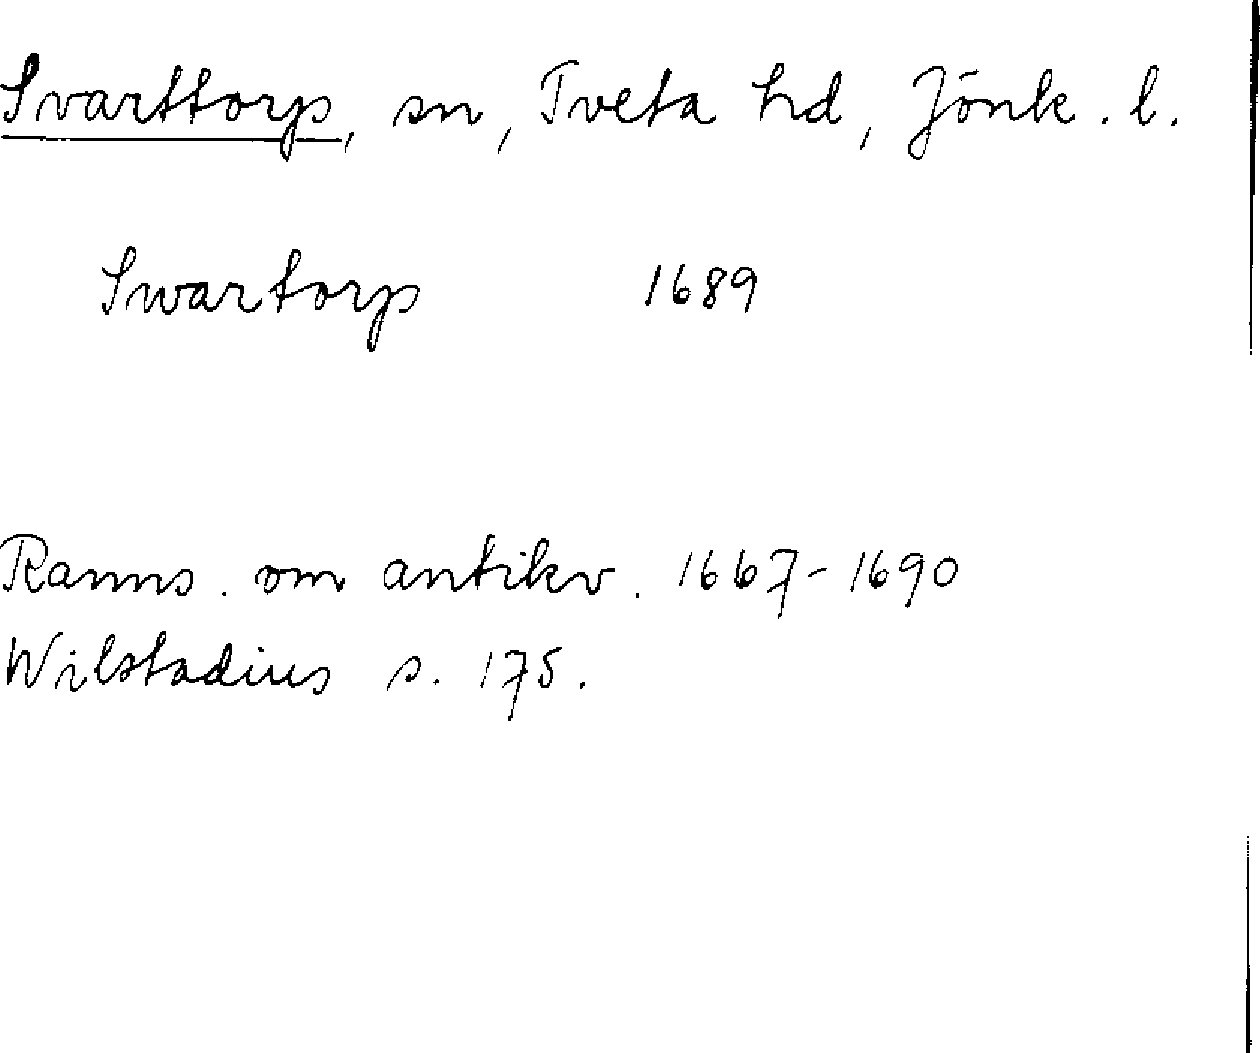 Svarttorp, sn, Tveta hd, Jönk. l.
Swartorp 1689
Ranns. om antikv. 1667-1690
Wilstadius s. 175.